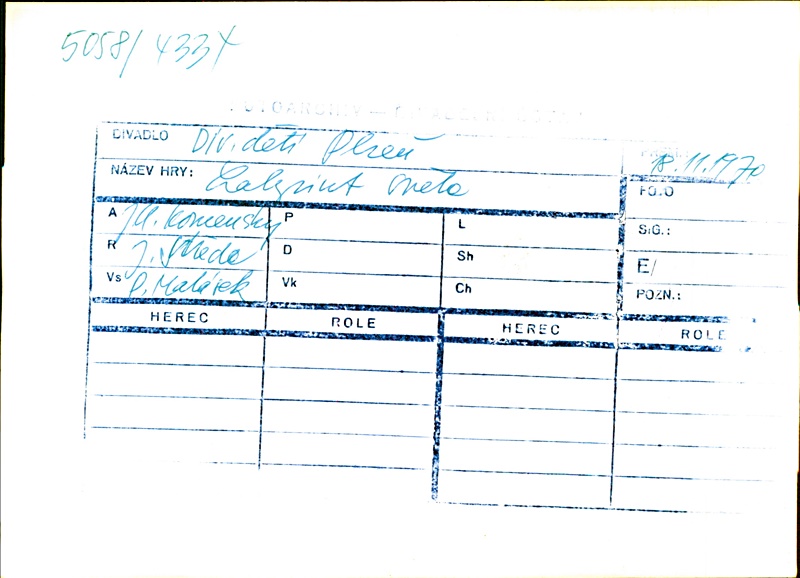 5058/4334
FOTOARCHIV —
DIVADLO Div. dětí Plzeň
18.11.1970
NÁZEV HRY: Labyrint světa
FOTO
A J.A. Komenský P L SIG.:
R J. Středa D Sh E/
Vs P. Matásek Vk Ch POZN.:
HEREC ROLE HEREC ROLE